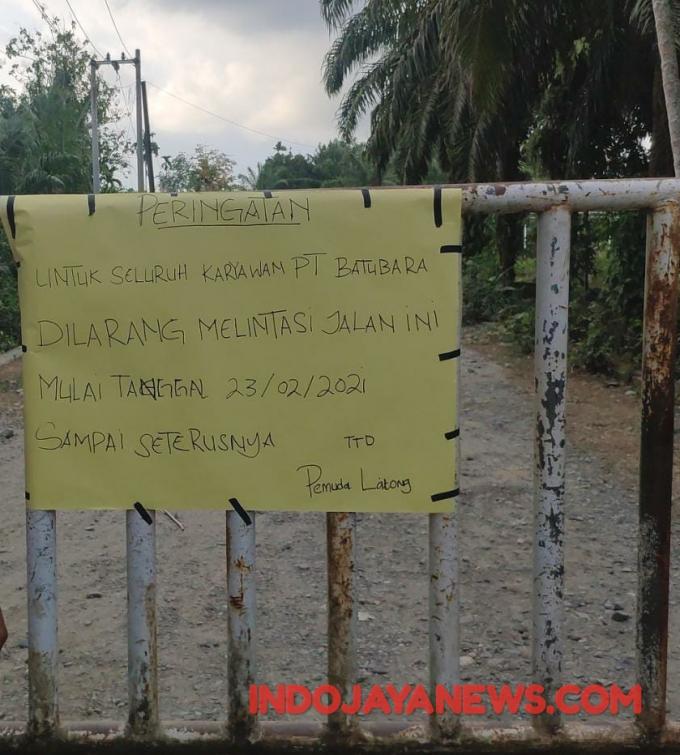 PERINGATAN
UNTUK SELURUH KARYAWAM PT BATUBARA
DILARANG MELINTASI JALAN INI
MULAI TANGGAL 23/02/2021
SAMPAI SETERUSNYA TTD
Pemuda Latong
INDOJAYANEWS.COM